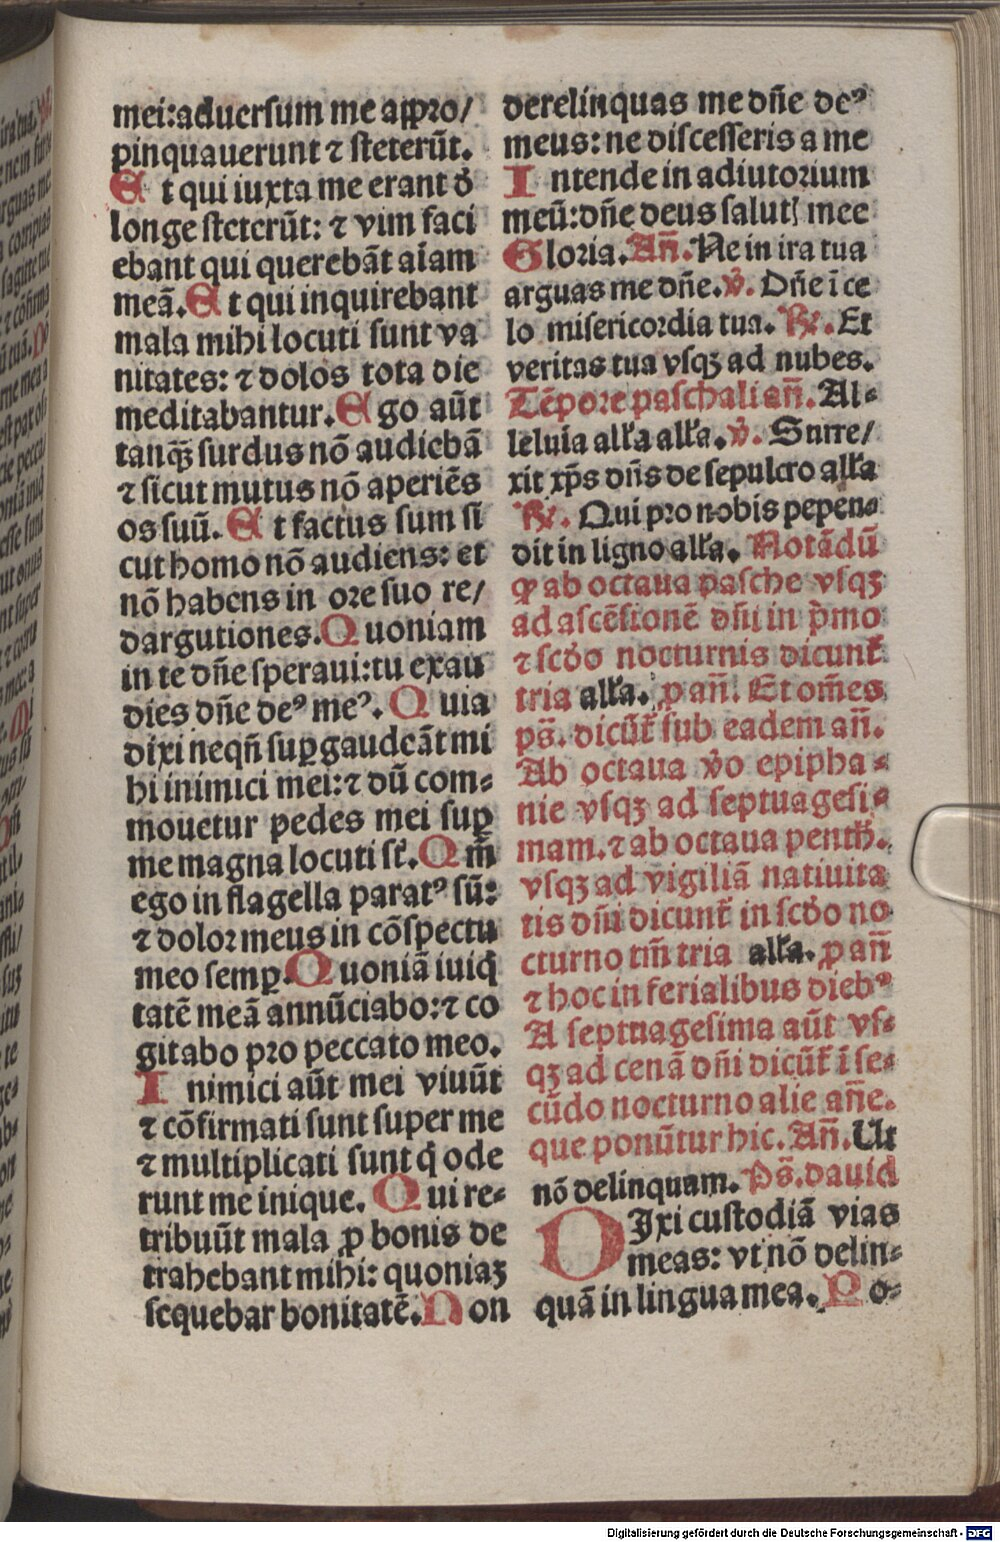 mei: aduersum me appro/
pinquauerunt ⁊ steterūt.
Et qui iuxta me erant d̄
longe steterūt: ⁊ vim faci
ebant qui querebāt aīam
meā. Et qui inquirebant
mala mihi locuti sunt va
nitates: ⁊ dolos tota die
meditabantur. Ego aūt
tanqꝫ surdus nō audiebā
⁊ sicut mutus nō aperiēs
os suū. Et factus sum si
cut homo nō audiens: et
nō habens in ore suo re/
dargutiones. Quoniam
in te dn̄e speraui: tu exau
dies dn̄e deꝰ meꝰ. Quia
dixi neqn̄ suꝑ gaudeāt mi
hi inimici mei: ⁊ dū com⸗
mouetur pedes mei suꝑ
me magna locuti st̄. Qm̄
ego in flagella paratꝰ sū:
⁊ dolor meus in cōspectu
meo semꝑ. Quoniā iniq̄
tatē meā annūciabo: ⁊ co
gitabo pro peccato meo.
Inimici aūt mei viuūt
⁊ cōfirmati sunt super me
⁊ multiplicati sunt q̄ ode
runt me inique. Qui re⸗
tribuūt mala ꝓ bonis de
trahebant mihi: quoniaꝫ
sequebar bonitatē. Non
derelinquas me dn̄e deꝰ
meus: ne discesseris a me
Intende in adiutorium
meū: dn̄e deus salutꝭ mee
Gloria. An̄. Ne in ira tua
arguas me dn̄e. ℣. Dn̄e ī ce
lo misericordia tua. ℟. Et
veritas tua vsqꝫ ad nubes.
Tēpore paschali an̄. Al⸗
leluia all'a all'a. ℣. Surre/
xit xp̄s dn̄s de sepulcro all'a
℟. Qui pro nobis pepen⸗
dit in ligno all'a. Notādū
ꝙ ab octaua pasche vsqꝫ
ad ascēsionē dn̄i in p̄mo
⁊ scd̄o nocturnis dicunt̄
tria all'a. ꝓ an̄. Et om̄es
ps̄. dicūt̄ sub eadem an̄.
Ab octaua v̄o epipha⸗
nie vsqꝫ ad septuagesi⸗
mam. ⁊ ab octaua penth̄.
vsqꝫ ad vigiliā natiuita
tis dn̄i dicunt̄ in scd̄o no
cturno tm̄ tria all'a. ꝓ an̄
⁊ hoc in ferialibus diebꝰ
A septuagesima aūt vs⸗
qꝫ ad cenā dn̄i dicūt̄ ī se⸗
cūdo nocturno alie an̄e.
que ponūtur hic. An̄. Ut
nō delinquam. Ps̄. dauid
DIxi custodiā vias
meas: vt nō delin⸗
quā in lingua mea. Po⸗
Digitalisierung gefördert durch die Deutsche Forschungsgemeinschaft - DFG